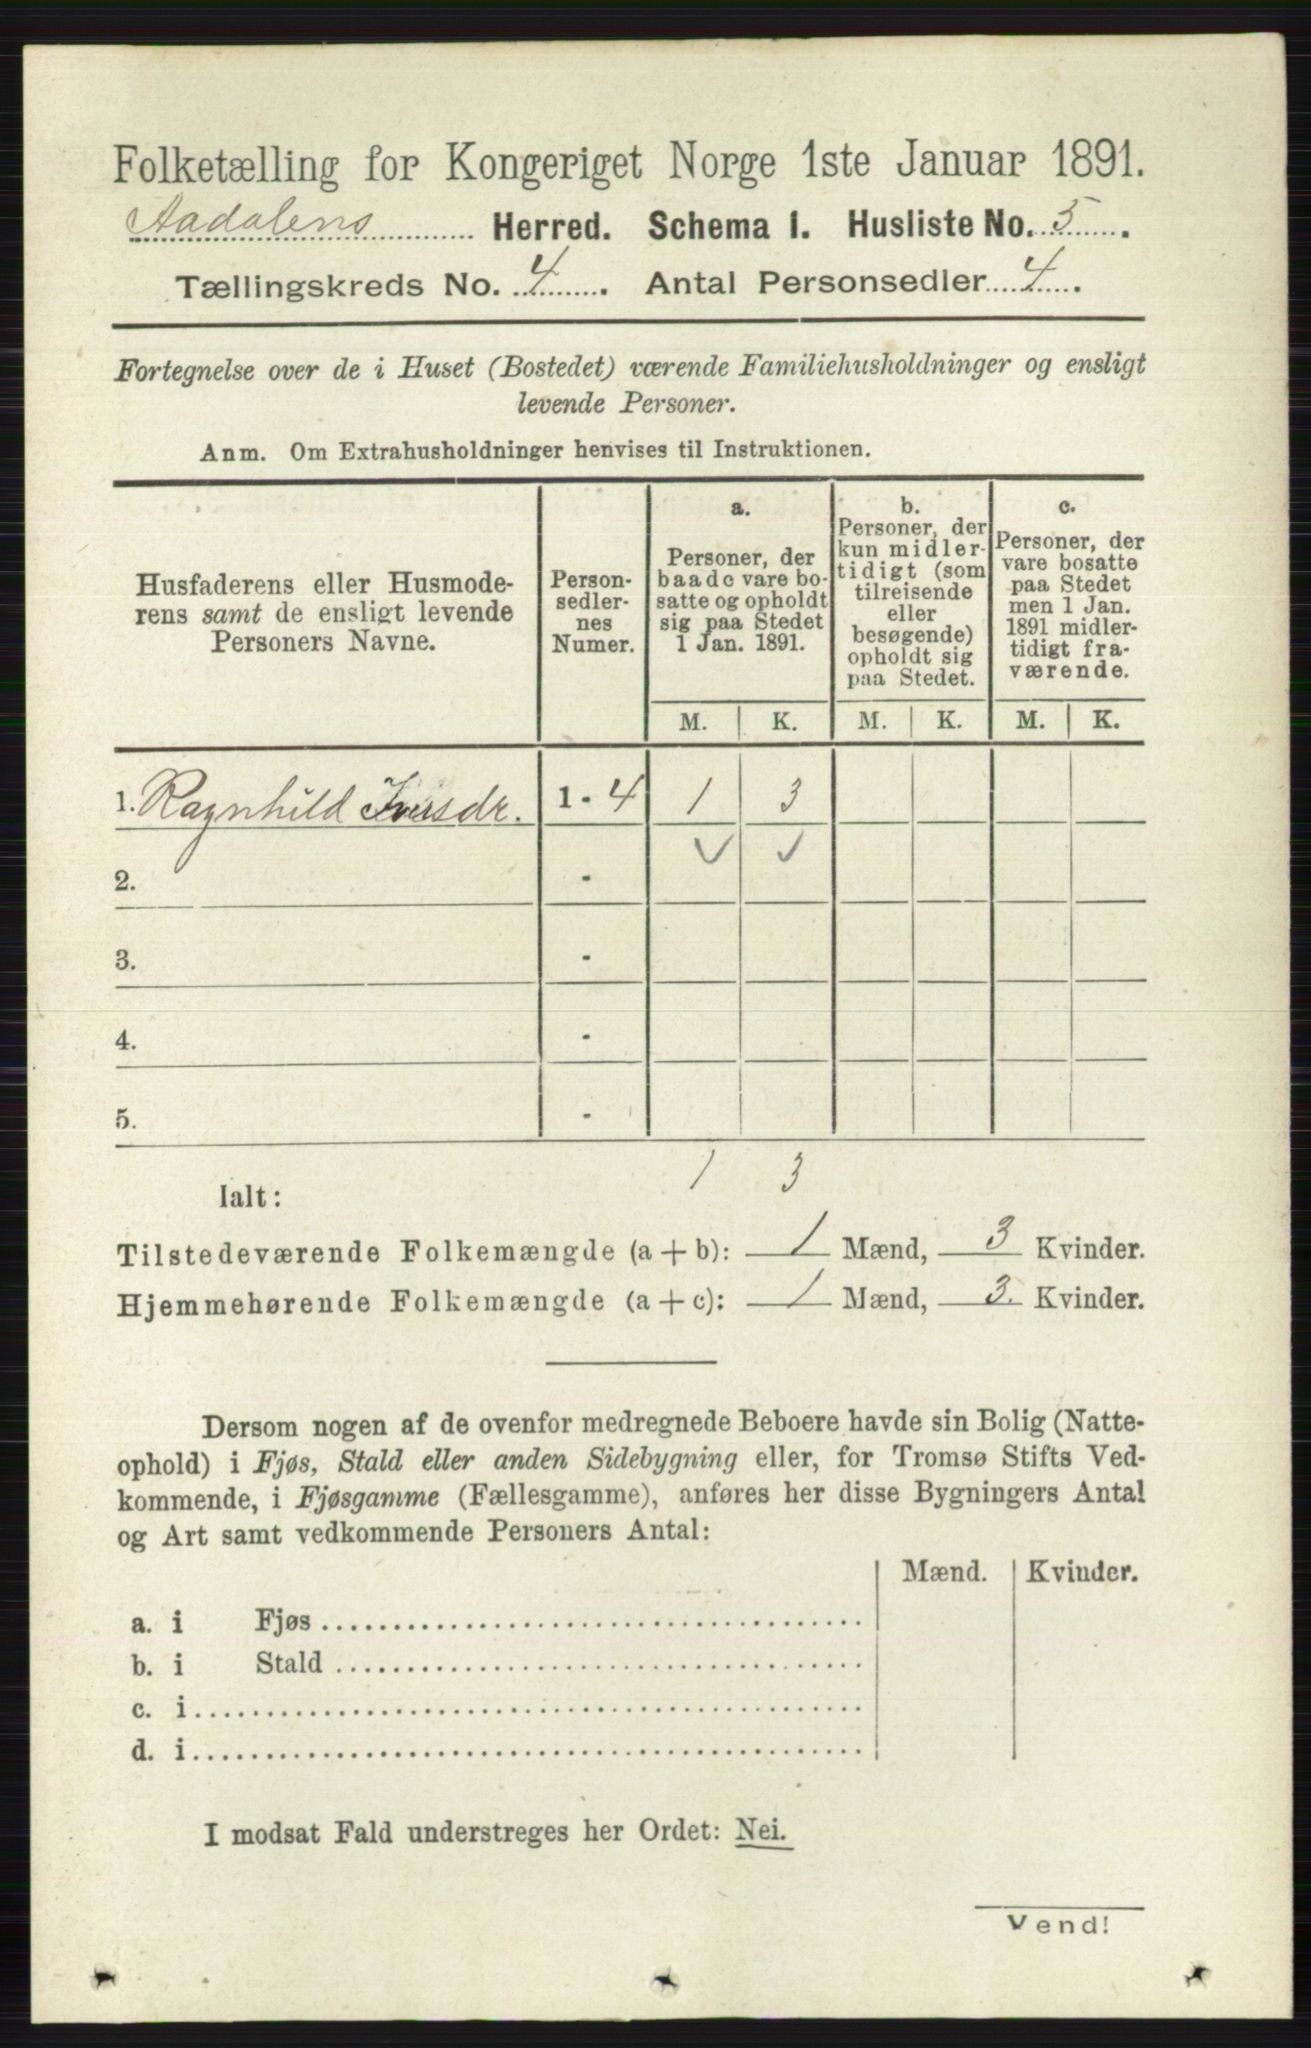 Folketælling for Kongeriget Norge 1ste Januar 1891.
Aadalens Herred. Schema I. Husliste No. 5.
Tællingskreds No. 4. Antal Personsedler 4.
Fortegnelse over de i Huset (Bostedet) værende Familiehusholdninger og ensligt
levende Personer.
Anm. Om Extrahusholdninger henvises til Instruktionen.
Husfaderens eller Husmode-
rens samt de ensligt levende
Personers Navne.
Person-
sedler-
nes
Numer.
a.
Personer, der
baade vare bo-
satte og opholdt
sig paa Stedet
1 Jan. 1891.
b.
Personer, der
kun midler-
tidigt (som
tilreisende
eller
besøgende)
opholdt sig
paa Stedet.
c.
Personer, der
vare bosatte
paa Stedet
men 1 Jan.
1891 midler-
tidigt fra-
værende.
M. K. M. K. M. K.
1. Ragnhild Iversdr. 1 - 4 1 3
2. -
3. -
4. -
5. -
Ialt: 1 3
Tilstedeværende Folkemængde (a + b): 1 Mænd, 3 Kvinder.
Hjemmehørende Folkemængde (a + c): 1 Mænd, 3. Kvinder.
Dersom nogen af de ovenfor medregnede Beboere havde sin Bolig (Natte-
ophold) i Fjøs, Stald eller anden Sidebygning eller, for Tromsø Stifts Ved-
kommende, i Fjøsgamme (Fællesgamme), anføres her disse Bygningers Antal
og Art samt vedkommende Personers Antal:
Mænd. Kvinder.
a. i Fjøs
b. i Stald
c. i
d. i
I modsat Fald understreges her Ordet: Nei.
Vend!